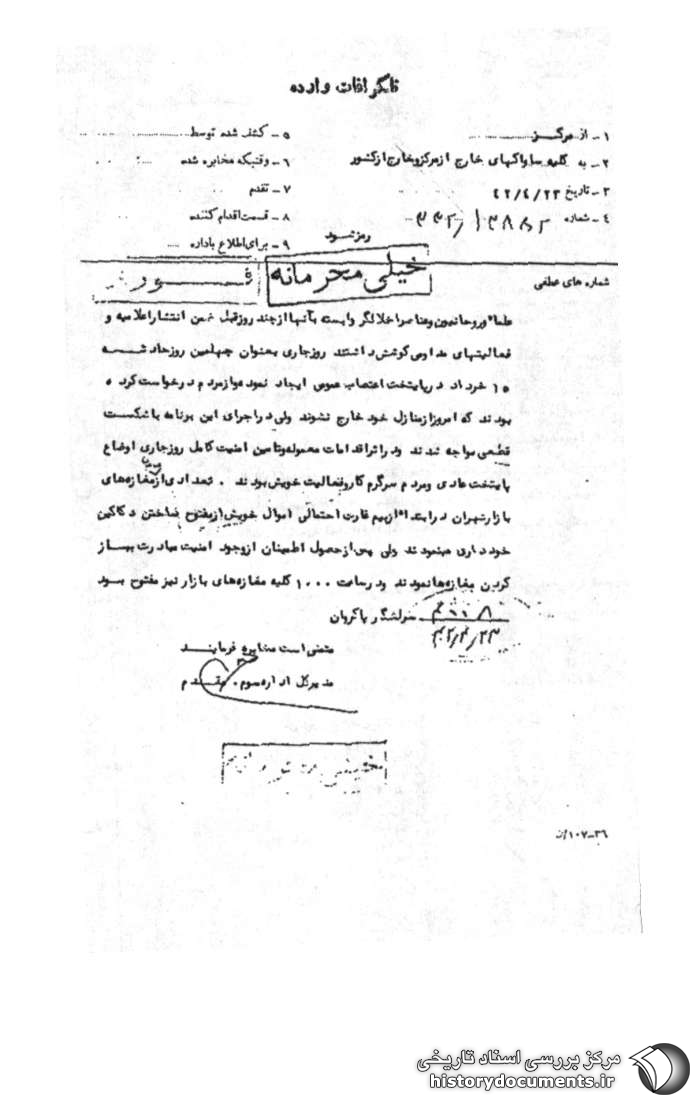 تلگرافات وارده
۱ـ از مرکز
۲ـ به کلیه ساواکهای خارج از مرکز و خارج از کشور
۳ـ تاریخ ۴۲/۴/۲۳
۴ـ شماره
۵ـ کشف شده توسط
۶ـ وقتیکه مخابره شده
۷ـ تقدم
۸ـ قسمت اقدام کننده
۹ـ برای اطلاع باداره
رمز شود
خیلی محرمانه
شماره های عطفی
علماء و روحانیون و عناصر اخلالگر وابسته بآنها از چند روز قبل ضمن انتشار اعلامیه و
فعالیتهای مداومی کوشش داشتند روز جاری بعنوان چهلمین روز حادثه
۱۵ خرداد در پایتخت اعتصاب عمومی ایجاد نموده و از مردم درخواست کرده
بودند که امروز از منازل خود خارج نشوند ولی در اجرای این برنامه با شکست
قطعی مواجه شدند و در اثر اقدامات معموله و تامین امنیت کامل روز جاری اوضاع
پایتخت عادی و مردم سرگرم کار و فعالیت خویش بودند . تعدادی از مغازه های
بازار تهران در ابتدا از بیم غارت احتمالی اموال خویش از مفتوح ساختن دکاکین
خودداری مینمودند ولی پس از حصول اطمینان از وجود امنیت مبادرت بباز
کردن مغازه ها نمودند و در ساعت ۱۰۰۰ کلیه مغازه های بازار نیز مفتوح بود
سرلشگر پاکروان
۴۲/۴/۲۳
مقتضی است مخابره فرمایند
مدیر کل اداره سوم . مقدم
خیلی محرمانه
۳۶-۱۰۷/ت
مرکز بررسی اسناد تاریخی
historydocuments.ir